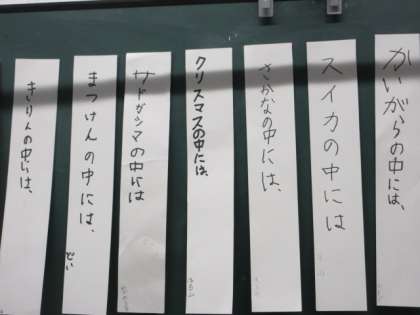 かいがらの中には、
スイカの中には
さかなの中には、
クリスマスの中には、
サドガシマの中には
まつけんの中には、
せい
きりんの中には、